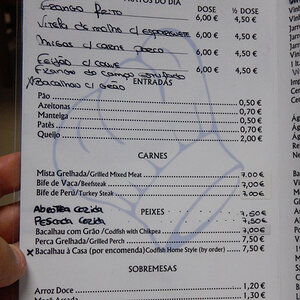 DO DIA
DOSE ½ DOSE
Frango frito 6,00 € 4,50 €
Vitela de molho c/ esparguete 6,00 € 4,50 €
Migas c/ carne porco 6,00 € 4,50 €
Feijão c/ couve
Frango do campo
x Bacalhau c/ Grão
ENTRADAS
Pão 0,50 €
Azeitonas 0,50 €
Manteiga 0,70 €
Patés 0,50 €
Queijo 2,00 €
CARNES
Mista Grelhada/Grilled Mixed Meat 7,00 €
Bife de Vaca/Beefsteak 7,00 €
Bife de Perú/Turkey Steak 7,00 €
PEIXES
Abrótea cozida 7,50 €
Pescada cozida 7,50 €
Bacalhau com Grão/Codfish with Chikpea 7,50 €
Perca Grelhada/Grilled Perch 7,50 €
x Bacalhau à Casa (por encomenda) Codfish Home Style (by order) 7,50 €
SOBREMESAS
Arroz Doce 1,20 €